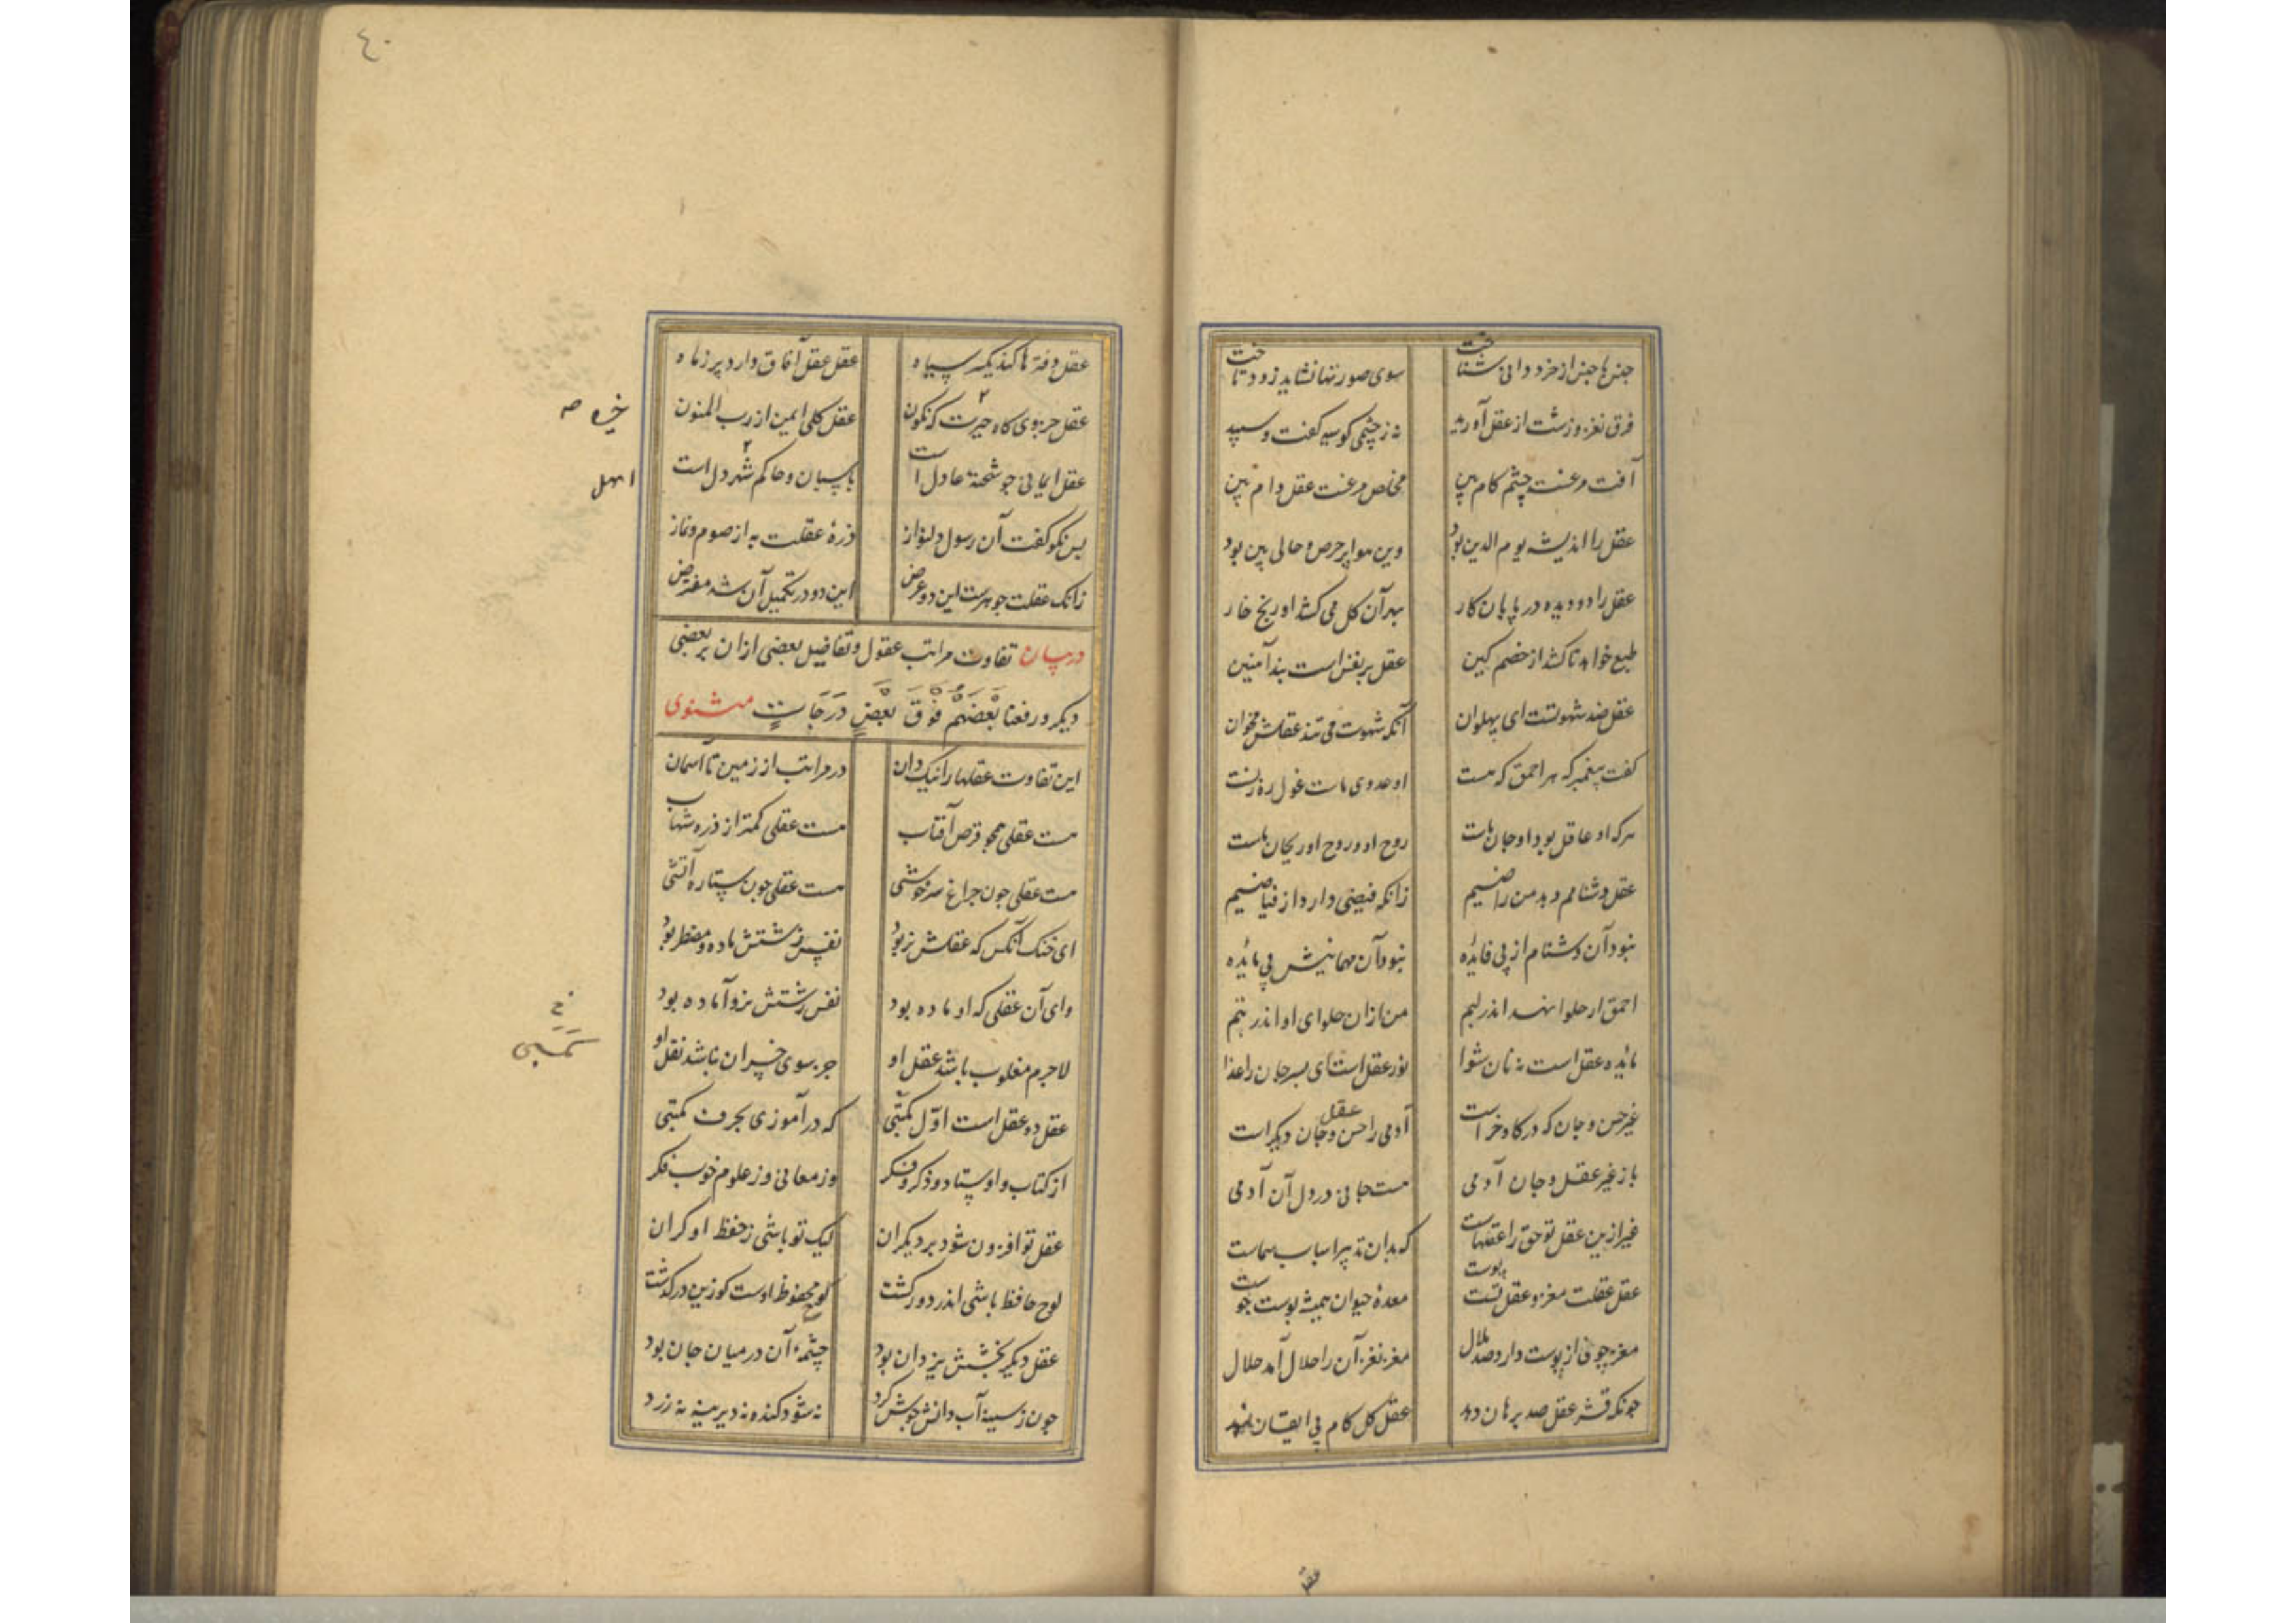 جنس ها جنس از خرد دانی شناخت سوی صورتها نشاید زود تاخت
فرق نغز و زشت از عقل آورید نه ز چشمی کو سیه گفت و سپید
آفت مرغست چشم کام بین مخلص مرغست عقل دام بین
عقل را اندیشه یوم الدین بود وین هوا پر حرص و حالی بین بود
عقل را دو دیده در پایان کار بهر آن کل می کشد او رنج خار
طبع خواهد تا کشد از خصم کین عقل بر نفس است بند آهنین
عقل ضد شهوتست ای پهلوان آنکه شهوت می تند عقلش مخوان
گفت پیغمبر که هر احمق که هست او عدوی ماست غول ره زنست
هرکه او عاقل بود او جان ماست روح او و روح او ریحان ماست
عقل دشنامم دهد من راضیم زانکه فیضی دارد از فیاضیم
نبود آن دشنام از بی فایده نبود آن مهمانیش بی مایده
احمق ار حلوا نهد اندر لبم من ازان حلوای او اندر تبم
مایده عقل است نه نان شوا نور عقل است ای پسر جان را غذا
غیر حس و جان که در کاو خر است آدمی را حس و جان دیگر است
عقل
باز غیر عقل و جان آدمی هست جانی در دل آن آدمی
غیر ازین عقل تو حق را عقلهاست که بدان تدبیر اسباب سماست
عقل عقلت مغز و عقل تست پوست معدهٔ حیوان همیشه پوست جوست
مغز جوئی از پوست دارد صد ملال مغز نغز آن را حلال آمد حلال
چونکه قشر عقل صد برهان دهد عقل کل کام بی ایقان نهد
عقل
٤٠
عقل دفترها کند یکسر سیاه عقل عقل آفاق دارد پر ز ماه
عقل جزوی گاه حیرت که نگون عقل کلی ایمن از رب المنون
خیره صه
عقل ایمانی جو شحنهٔ عادل است پاسبان و حاکم شهر دل است
اهل
بس نکو گفت آن رسول دلنواز ذرهٔ عقلت به از صوم و نماز
زانک عقلت جوهرست این دو عرض این دو در تکمیل آن شد مفترض
در بیان تفاوت مراتب عقول و تفاضیل بعضی ازان بر بعضی
دیگر و رفعنا بَعْضَهُمْ فَوْقَ بَعْضٍ دَرَجَاتٍ مثنوی
این تفاوت عقلها را نیک دان در مراتب از زمین تا آسمان
هست عقلی همچو قرص آفتاب هست عقلی کمتر از ذره شهاب
هست عقلی جون جراغ سرخوشی هست عقلی جون ستاره آتشی
ای خنک آنکس که عقلش نر بود نفس زشتش ماده و مضطر بود
وای آن عقلی که او ماده بود نفس زشتش نر و آماده بود
لاجرم مغلوب باشد عقل او جز سوی خسران نباشد نقل او
عقل دو عقل است اوّل مکتبی که در آموزی بحرف مکتبی
از کتاب و اوستاد و ذکر و فکر وز معانی وز علوم خوب فکر
عقل تو افزون شود بر دیگران لیک تو باشی ز حفظ او گران
لوح حافظ باشی اندر دور گشت کو محفوظ اوست کو زین درگذشت
عقل دیگر بخشش یزدان بود چشمهٔ آن در میان جان بود
چون ز سینه آب دانش جوش کرد نه شود گنده نه دیرینه نه زرد